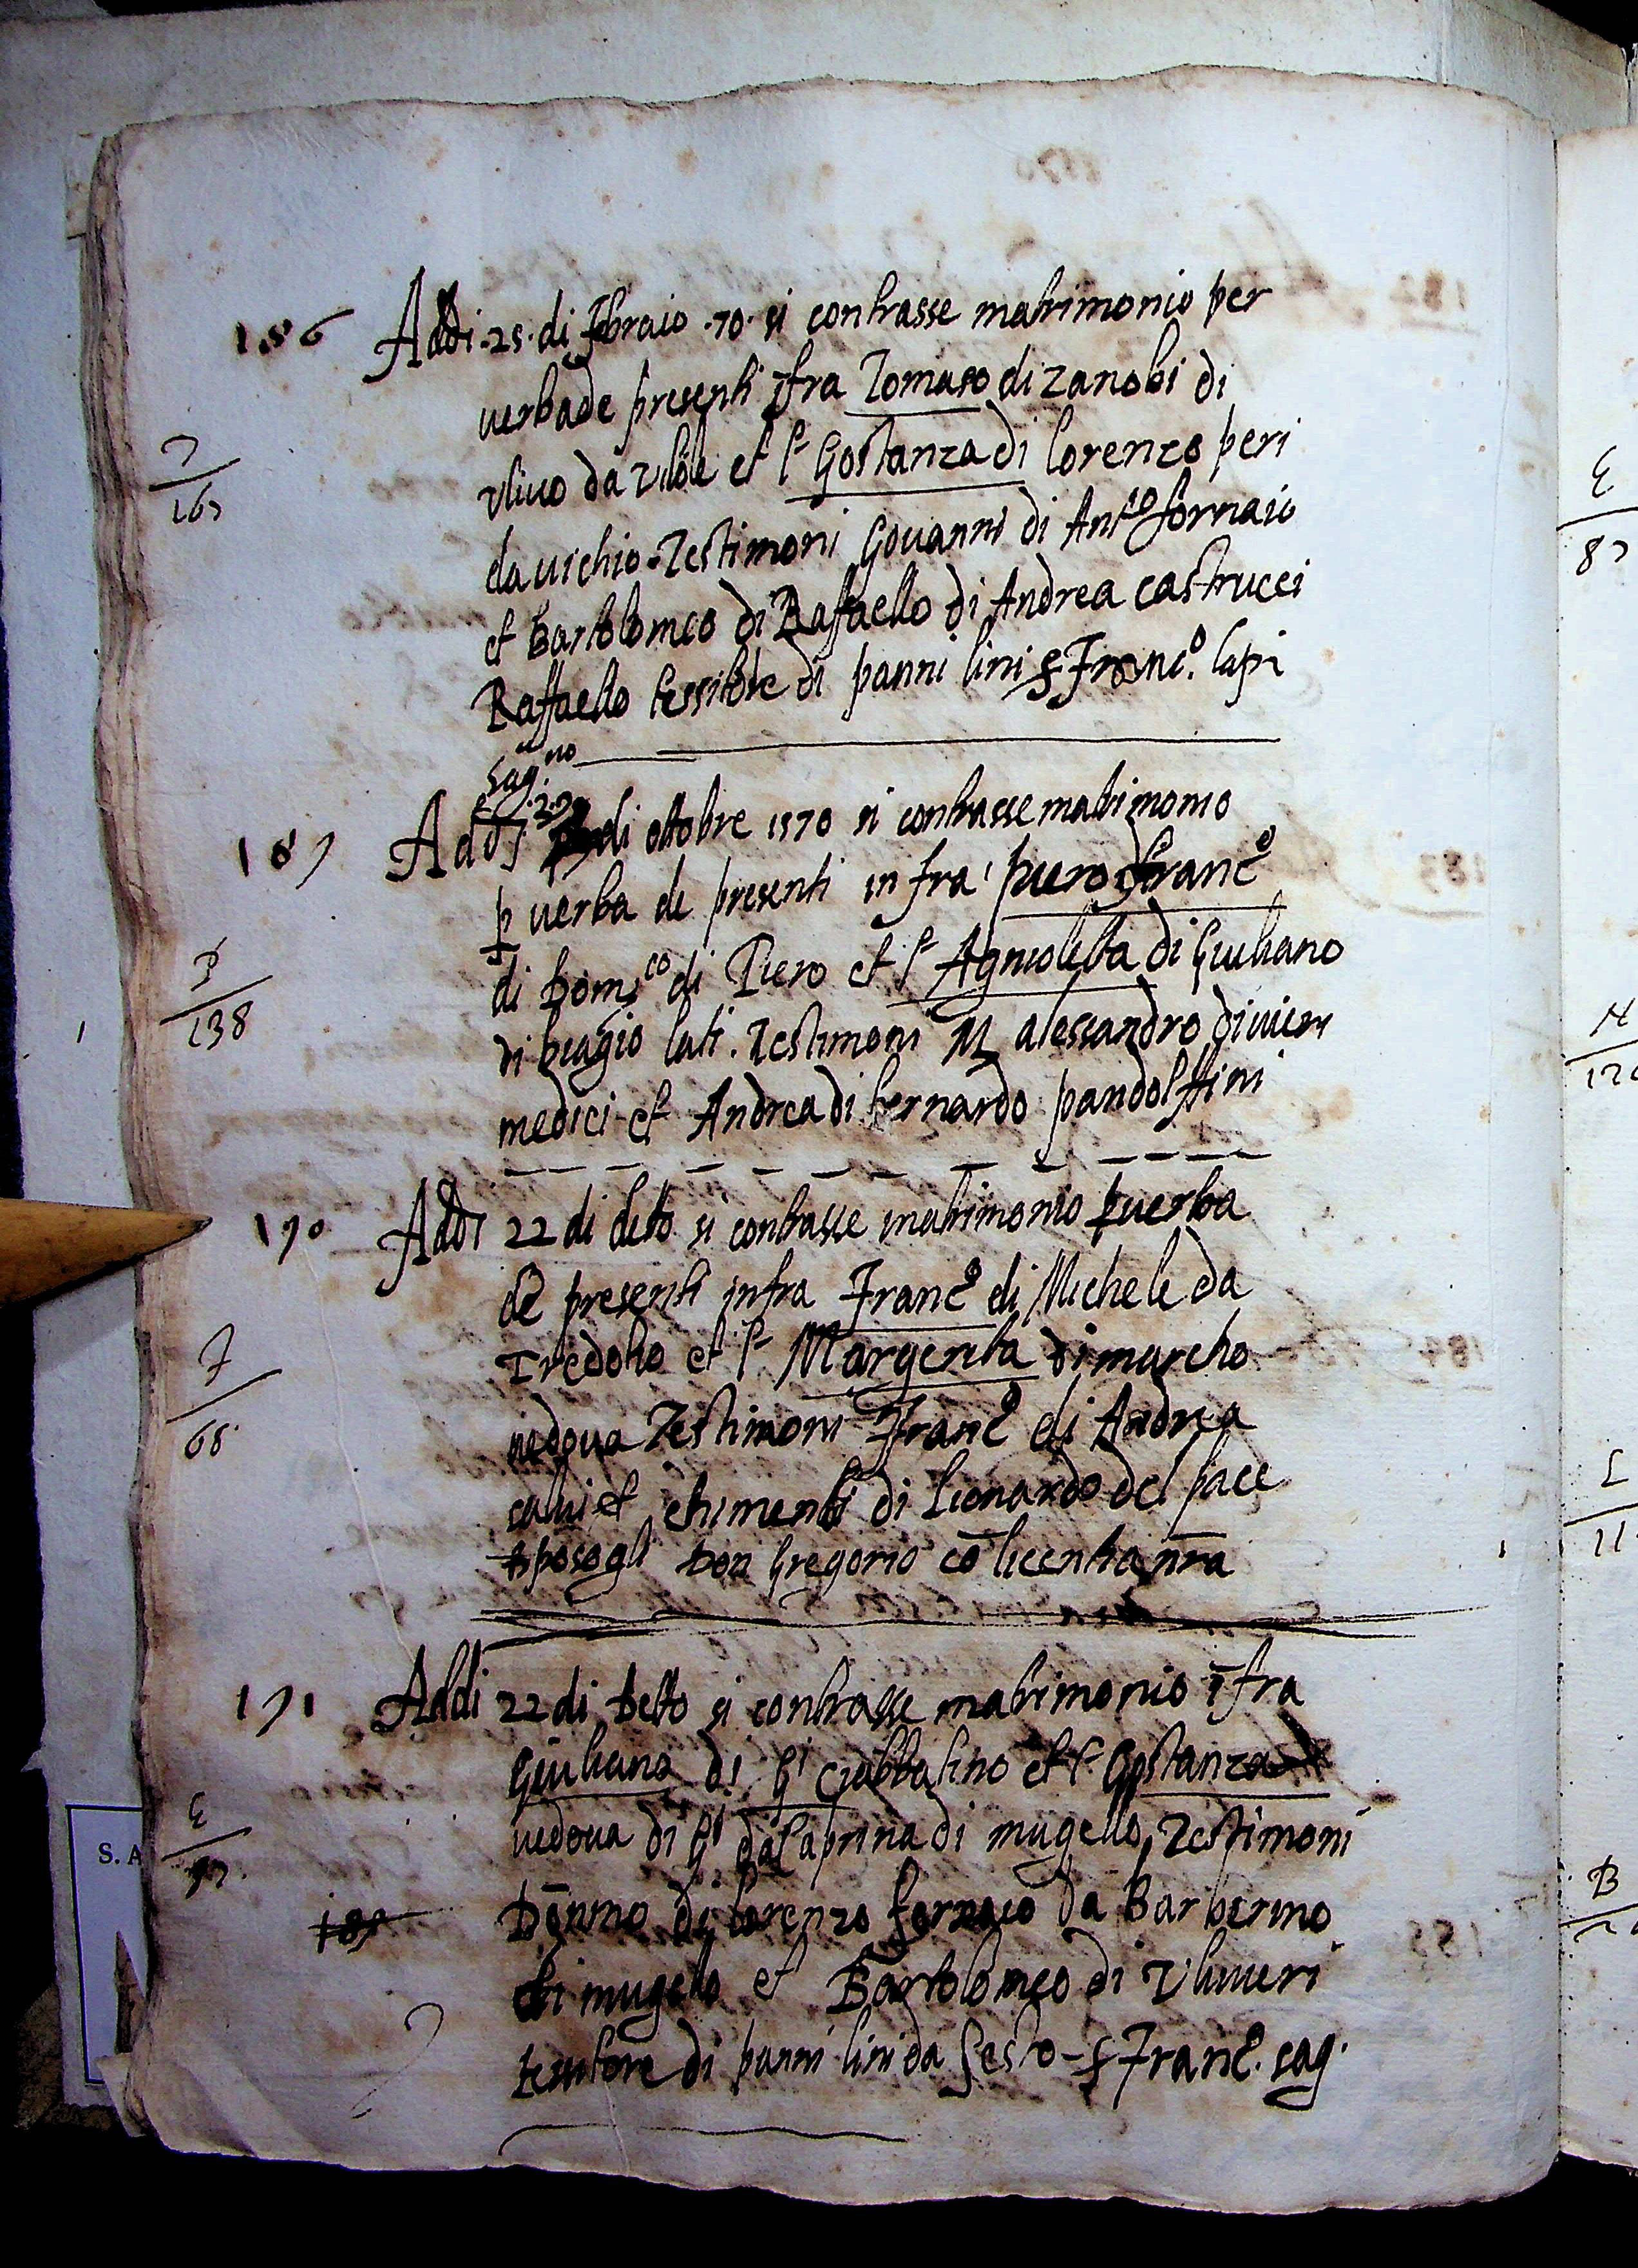 186 Addi .25. di Febraio .70. si contrasse matrimonio per
verba de presenti ifra Tomaso di zanobi di
Ulivo da et Gostanza di lorenzo peri
T
167
da vichio. Testimoni Giovanni di Antco fornaio
et bartolomeo di Raffaello di Andrea castrucci
Raffaello tessitore di panni lini Franco. lapi
Sagno
187 Addi 22 di ottobre 1570 si contrasse matrimonio
p verba de presenti infra piero
P
138
di Domco di Piero et Agnioletta di Giuliano
di biagio lati. Testimoni M alessandro di vieri
medici et Andrea di bernardo pandolffini
190 Addi 22 di deto si contrasse matrimonio p verba
de presenti infra Franco di Michele da
F
68
et Margerita di marcho
vedova Testimoni Franco di Andrea
salvi et chimenti di lionardo del pace
sposogli Don Gregorio co licentia nra
191 Addi 22 di Detto si contrasse matrimonio ifra
Giuliano di Gi et Gostanza
vedova di Gi da di mugello, Testimoni
189
di lorenzo fornaio da Barberino
di mugello et Bartolomeo di Ulivieri
tessitore di panni lini da Sesto - Franco. sag.
S. A
E
87
M
L
11
B